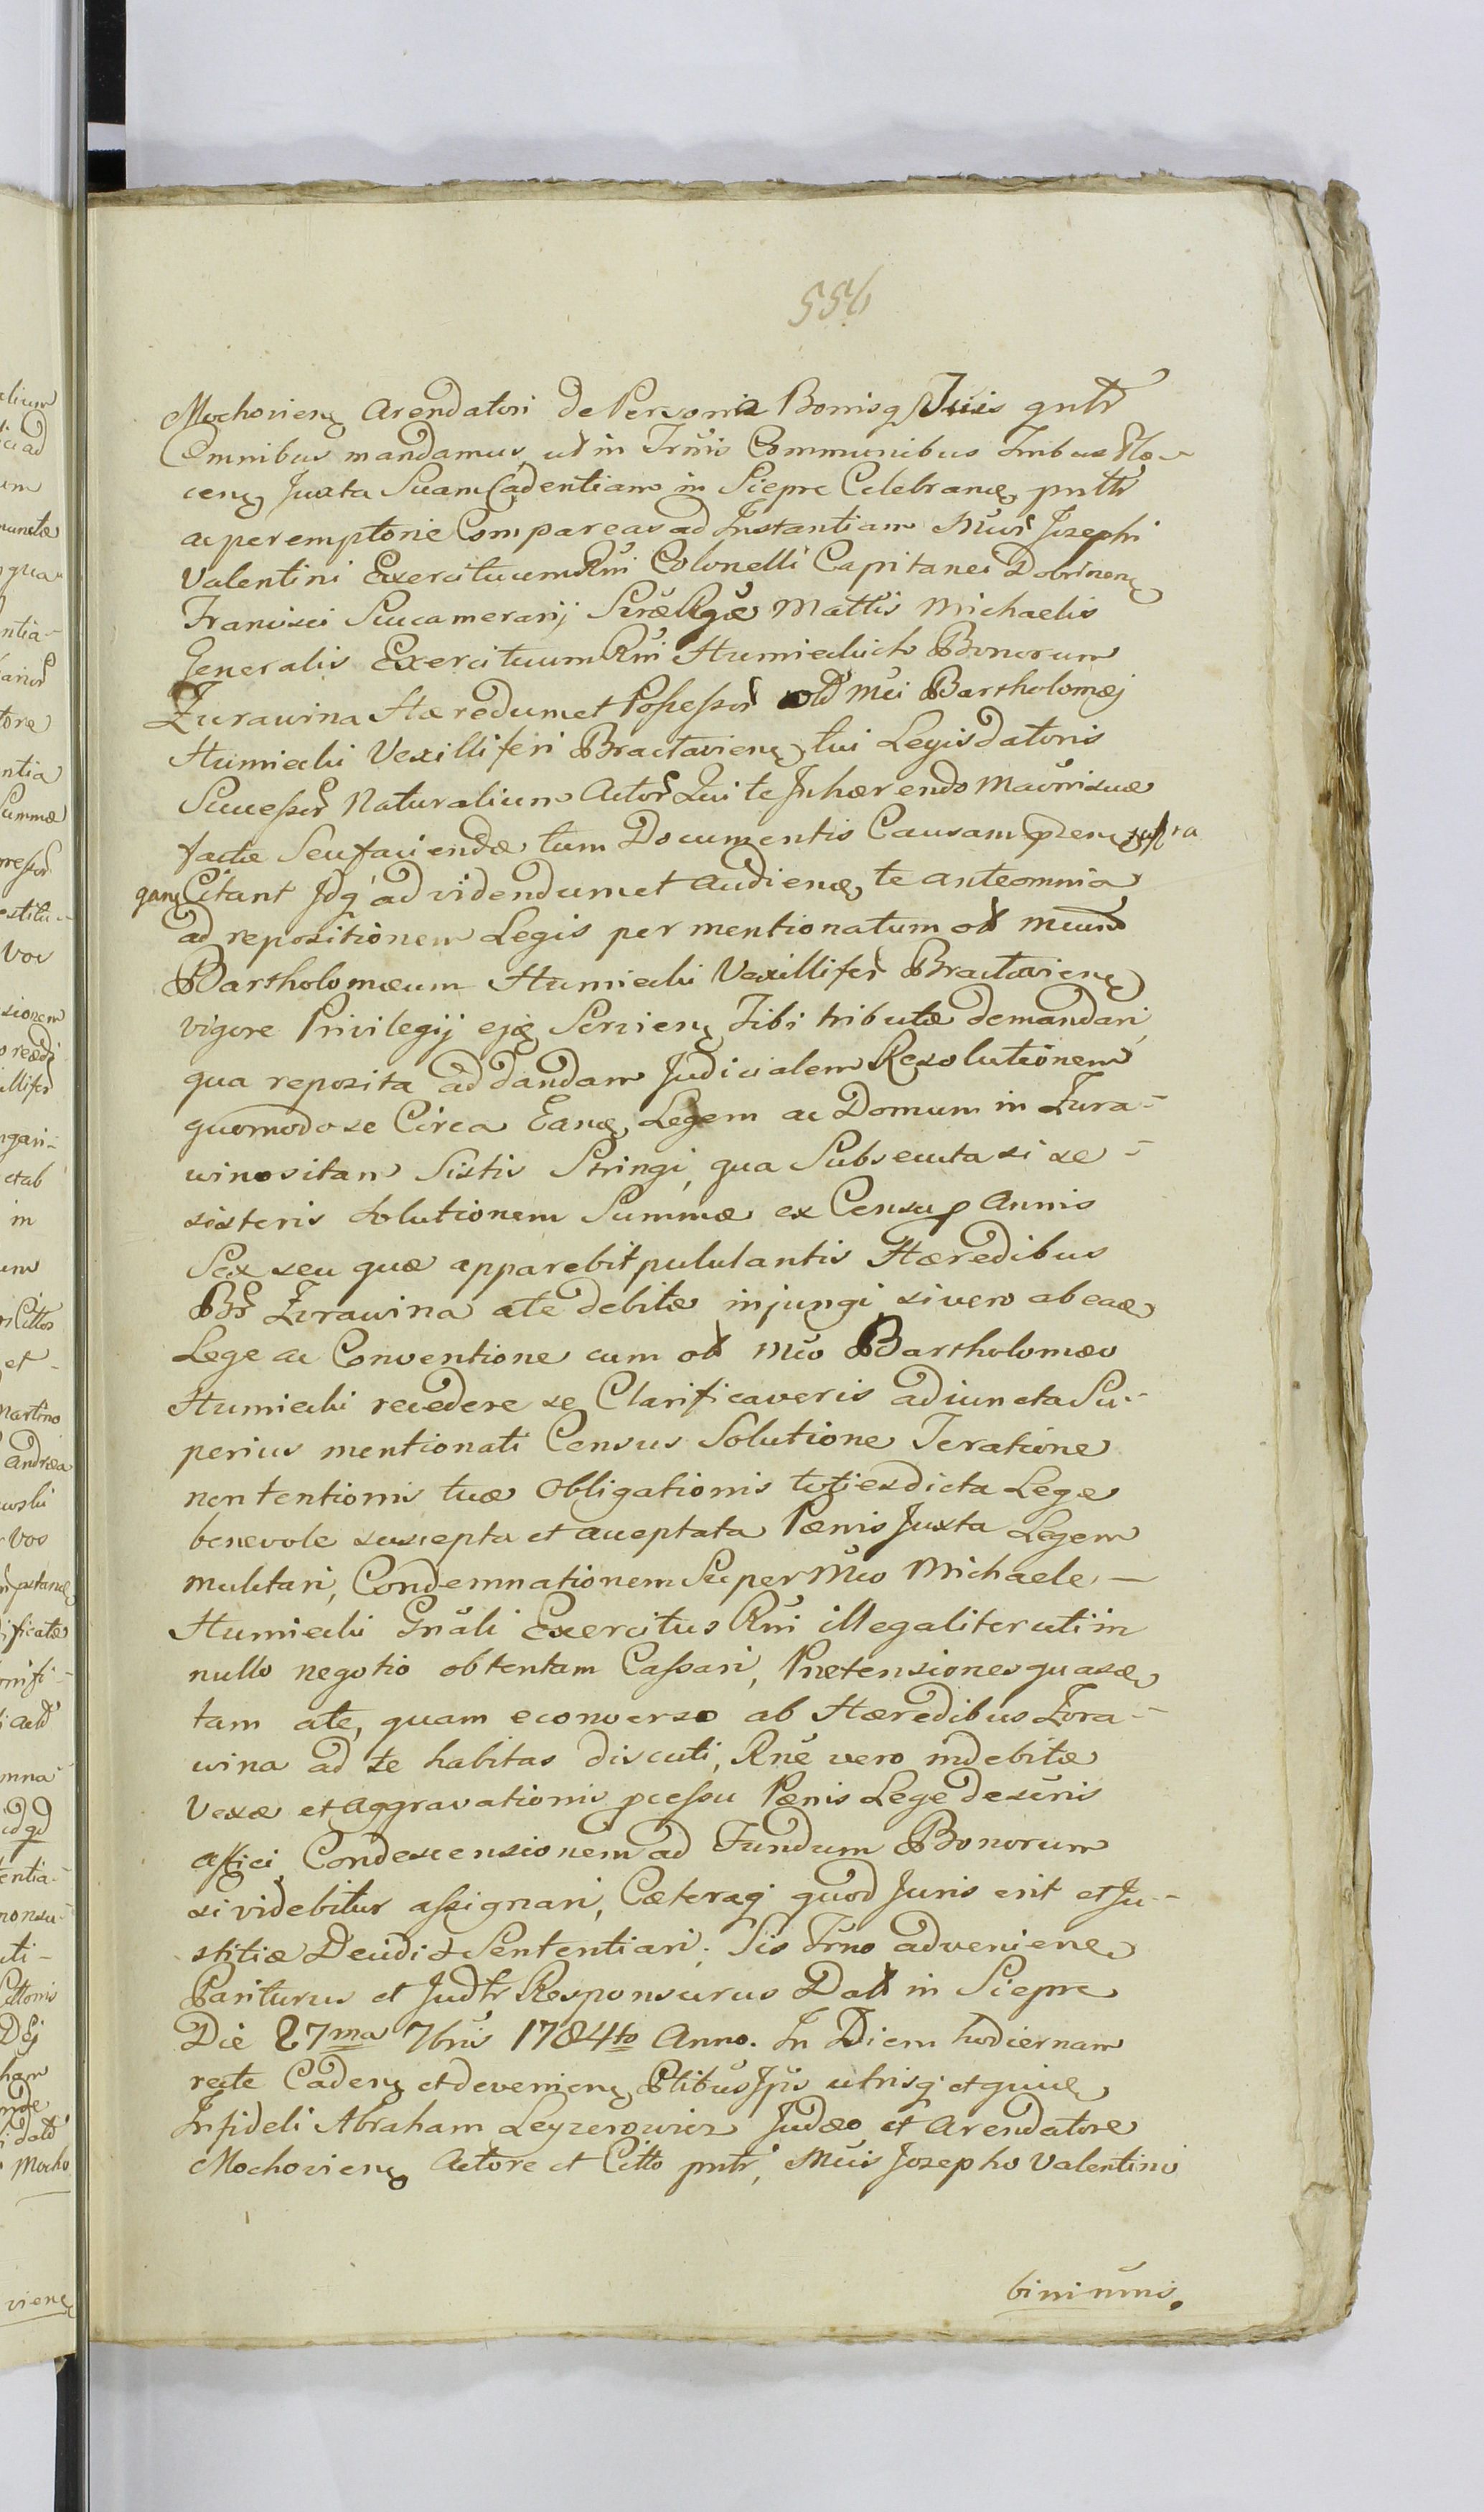 556
Mochoviens Arendatori de Personia Bonisq Tuis gnltr
Omnibus mandamus ut in Trnis Communibus Trrbus Plo-
cens Juxta Suam Cadentiam in Siepre Celebrane pnttr
ac peremptorie Compareas ad Instantiam Mūor Josephi
Valentini Exercituum Rni Colonelli Capitanei Dobrinens
Francisci Succamerarij Sacræ Rgæ Mattis Michaelis
Generalis Exercituum Rni Humieckich Bonorum
Zurawina Hæredum et Possessor old Mci Bartholomæj
Humiecki Vexilliferi Bractaviens tui Legisdatoris
Successor Naturalium Actor Qui te Inhærendo Maonisuæ
factæ Seu faciendæ tum Documentis Causam pzens supra
gans Citant Idq ad videndum et Audiene te ante omnia
ad repositionem Legis per mentionatum ol Mcum
Bartholomæum Humiecki Vexillifer Bractaviens
vigore Privilegij ejq Serviens Tibi tributæ demandari,
qua reposita ad dandam Judicialem Resolutionem
quomodo se Circa Eane Legem ac Domum in Zura-
wino sitam Sistis Stringi, qua Subsecuta si se-
sisteris Solutionem Summæ ex Censu p Annis
Sex seu quæ apparebit pululantis Hæredibus
Br Zurawina a te debitæ injungi si vero ab eae
Lege ac Conventione cum ol Mco Bartholomæo
Humiecki recedere se Clarificaveris adiuncta Su-
perius mentionati Census Solutione Te ratione
non tentionis tuæ Obligationis toties dicta Lege
benevole suscepta et acceptata Pænis Juxta Legem
mulctari, Condemnationem Super Mco Michaele -
Humiecki Gnāli Exercitus Rni illegaliter uti in
nullo negotio obtentam Cassari, Prætensiones quasæ
tam a te, quam econverso ab Hæredibus Zura-
wina ad te habitas discuti, Rne vero indebitæ
Vexæ et Aggravationis pcessu Pænis Lege desūnis
affici, Condescensionem ad Fundum Bonorum
si videbitur assignari, Cæteraq quod Juris erit et Ju-
stitiæ Decidi et Sententiari. Sis Trno adveniene
Pariturus et Judtr Responsurus Dat in Siepre
Die 27ma 7bris 1784to Anno. In Diem hodiernam
recte Cadens et deveniens Ptibus Ips utrisq et quide
Infideli Abraham Leyzerowicz Judæo et Arendatore
Mochoviens Actore et Citto pntr, Mcis Josepho Valentino
binimnis.